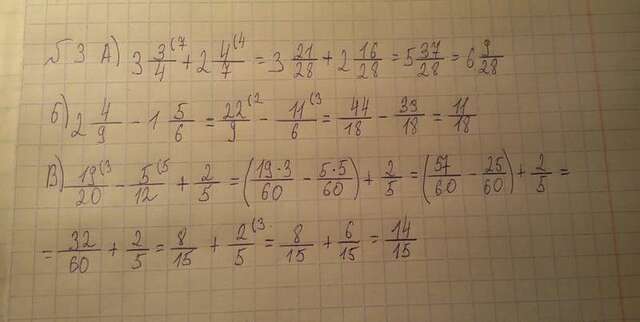 №3 А) 3 3/4 (7 + 2 4/7 (4 = 3 21/28 + 2 16/28 = 5 37/28 = 6 9/28
б) 2 4/9 - 1 5/6 = 22/9 (2 - 11/6 (3 = 44/18 - 33/18 = 11/18
В) 19/20 (3 - 5/12 (5 + 2/5 = (19·3/60 - 5·5/60) + 2/5 = (57/60 - 25/60) + 2/5 =
= 32/60 + 2/5 = 8/15 + 2/5 (3 = 8/15 + 6/15 = 14/15